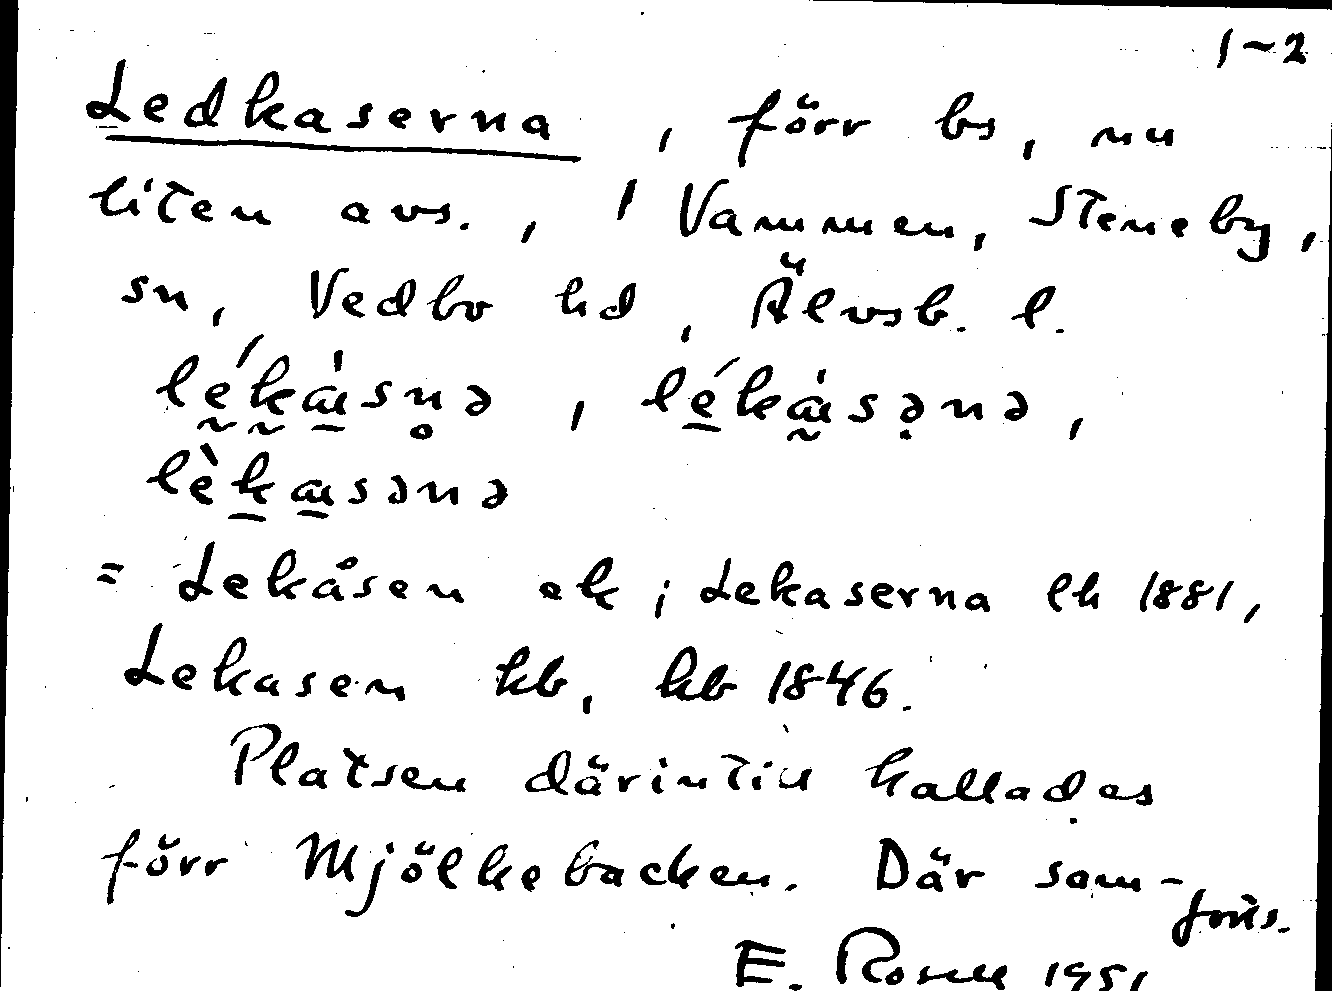 1–2
Ledkaserna, förr bs, nu
liten avs., i Vammen, Steneby,
sn, Vedbo hd, Älvsb. l.
= Lekåsen ek; Lekaserna lh 1881,
Lekasen kb, hb 1846.
Platsen därintill kallades
förr Mjölkebacken. Där sam-
forts.
E. Rosell 1951